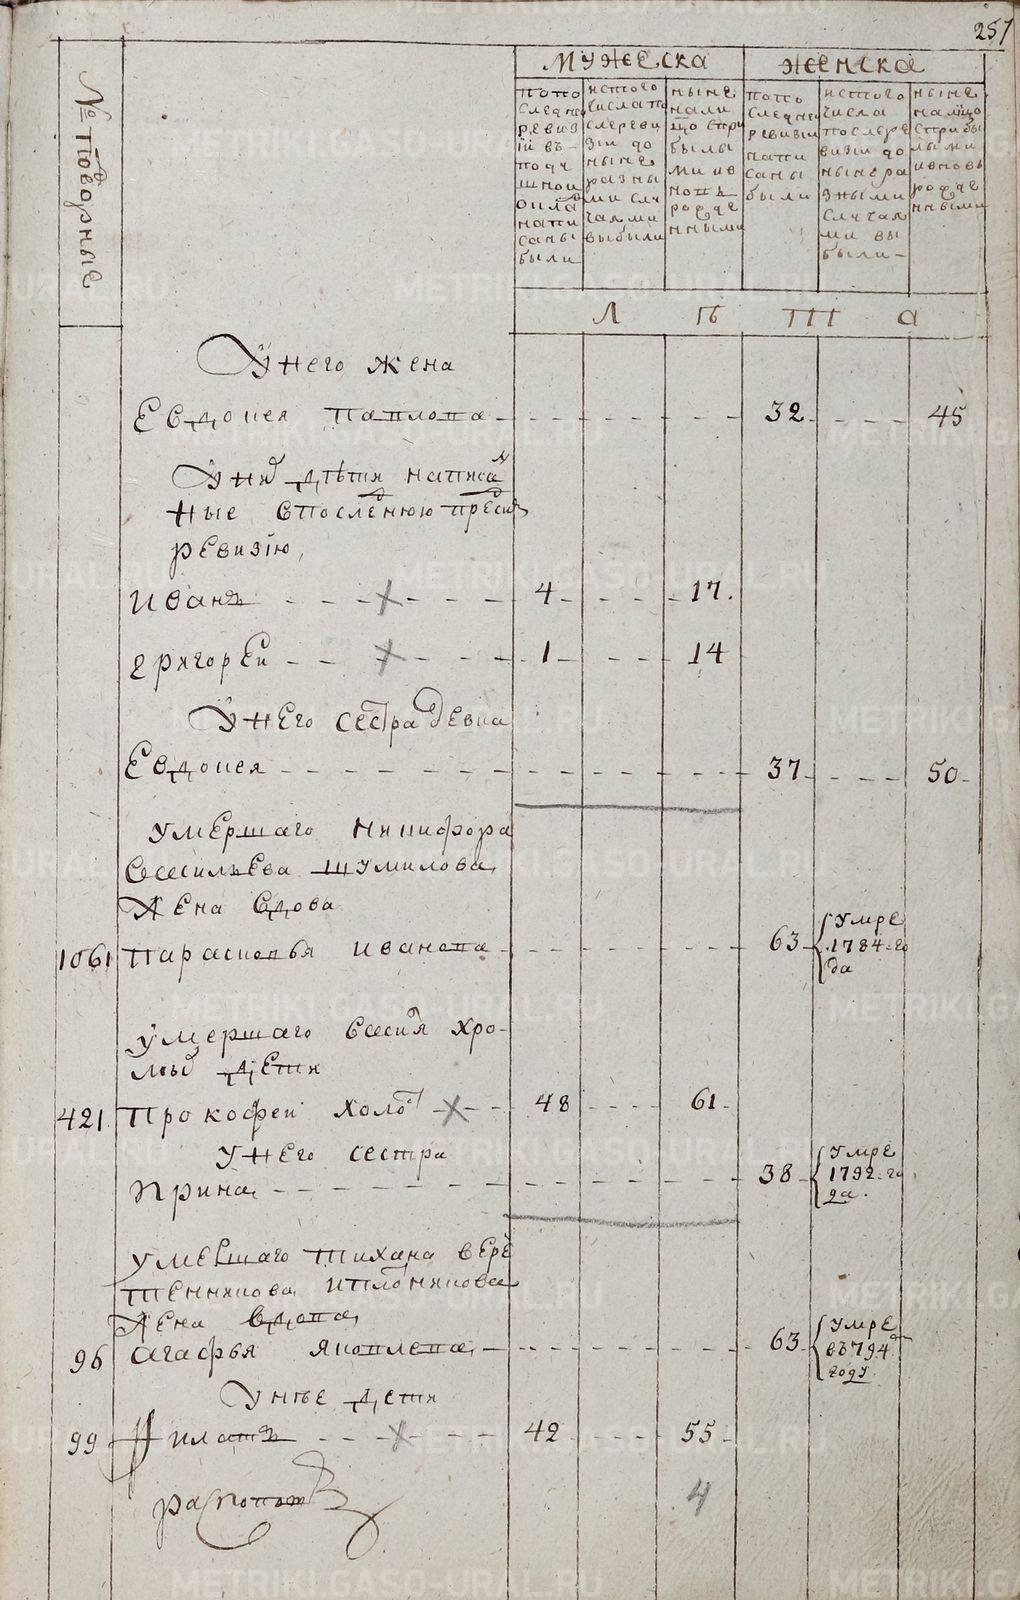 257
№ подворные
мужеска
женска
по по
следней
ревиз
ии въ
подч
шнои
написаны
были
из того
числа по
сле реви
зии до
ныне
разны
ми слу
чаями
выбыли
ныне
нали
цо с при
былы
ми и в
новь
рожде
нными
по по
следней
ревизии
напи
саны
были
из того
числа
после ре
визии до
ныне ра
зными
случая
ми вы
были
ныне
на лицо
с прибы
лыми
и вновь
рожде
нными
Л
ѣ
Т
а
У него жена
Евдокея Павлова 32 45
У них дѣти написан
ные в последнюю пред сим
ревизiю,
Иванъ 4 17.
Григорей 1 14
У него сестра девка
Евдокея 37 50
умершаго Никифора
Васильева Шумилова
жена вдова
1061 Парасковья Иванова 63 умре
1784 го
да
умершаго Васил Хро
мых дети
421 Прокофеи холос 48 61
У него сестра
Ирина 38 умре
1792 го
да.
умершаго Тихана Вере
тенникова и Плотникова
жена вдова
96 Агафья Яковлева 63 умре
въ 794
году.
У нее дети
99 Ипатъ 42 55
4
METRIKI.GASO-URAL.RU